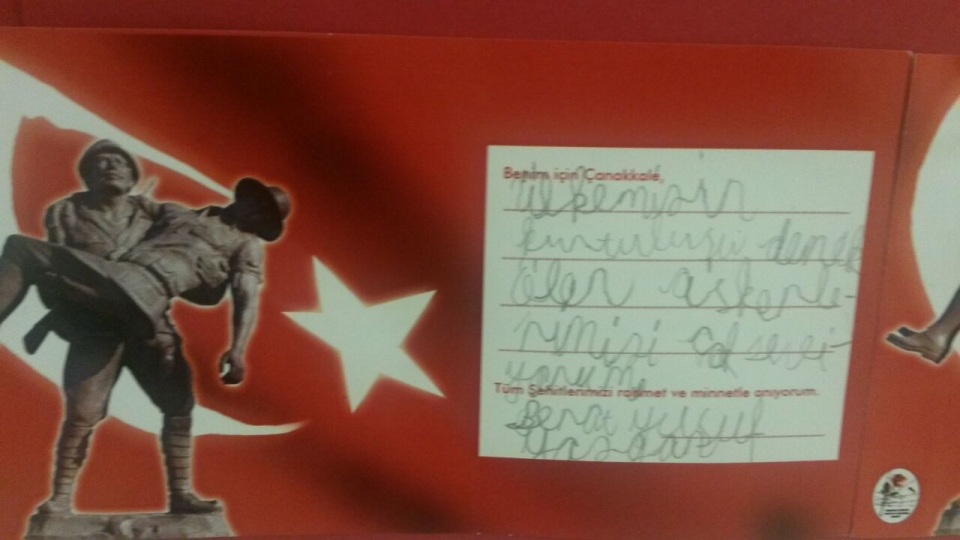 Benim için Çanakkale,
ülkemizin
kurtuluşu demek
ölen askerle-
rimizi çok sevi-
yorum
Tüm Şehitlerimizi rahmet ve minnetle anıyorum.
Berat Yusuf